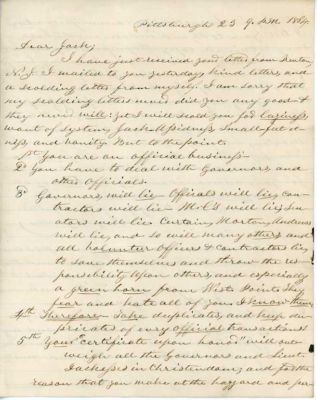 Pittsburgh 23 9. 1864.
Dear Jack,
I have just received your letter from Trenton,
N.J. I mailed to you yesterday kind letters and
a scolding letter from myself. I am sorry that
my scolding letters never did you any good &
they never will: yet I will scold you for laziness,
want of system, and vanity. But to the point.
1st You are on official business.
2d You have to deal with Governors and
other officials.
3d Governors will lie Officials will lie, con-
tractors will lie M.C's will lie, Sen-
ators will lie Certain
will lie, and so will many others, and
all volunteer officers & contractors lie,
to save themselves and throw the res-
ponsibility upon others, and especially
a green horn from West Point. They
fear and hate all of you. I know them.
4th Therefore take duplicates, and keep du-
plicates of every official transaction
5th Your "certificate upon honor" will out-
weigh all the Governors and Lieut.
in Christendom, and for the
reason that you make at the hazzard and